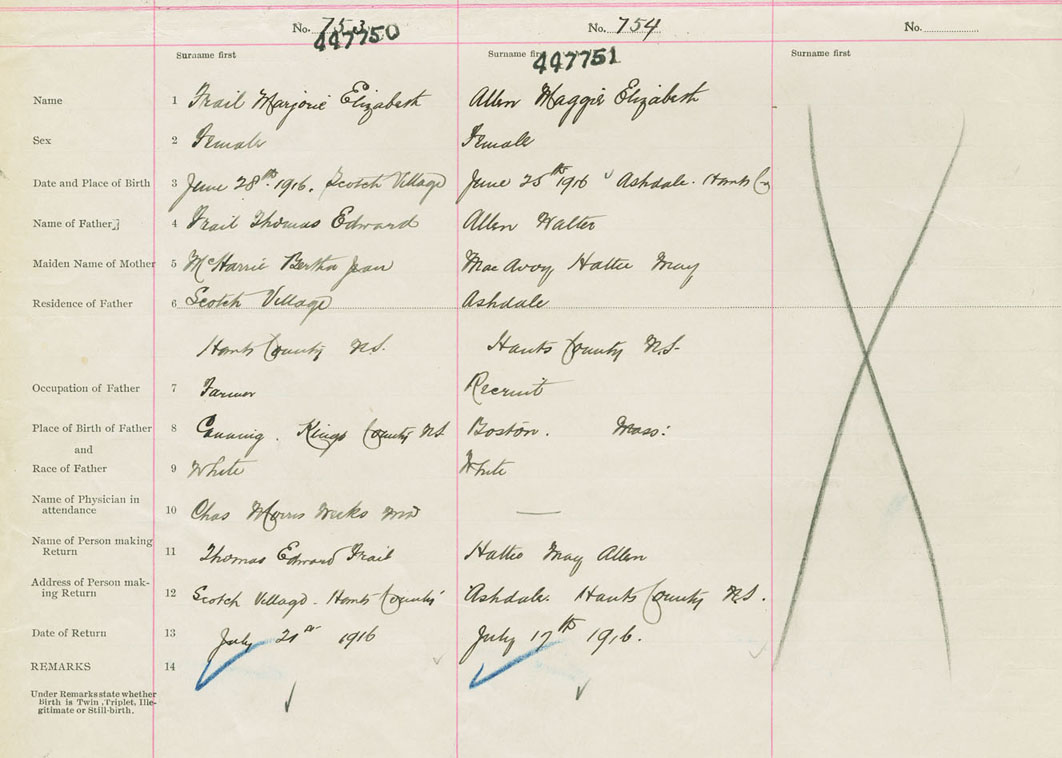 No. 753 No. 754 No.
447750 447751
Surname first Surname first Surname first
Name 1 Trail Marjorie Elizabeth Allen Maggie Elizabeth
Sex 2 Female Female
Date and Place of Birth 3 June 28th 1916. Scotch Village June 25th 1916 Ashdale. Hants Co
Name of Father 4 Trail Thomas Edward Allen Walter
Maiden Name of Mother 5 McHarrie Bertha Jean MacAvoy Hattie May
Residence of Father 6 Scotch Village Ashdale
Hants County N.S. Hants County N.S.
Occupation of Father 7 Farmer Recruit
Place of Birth of Father 8 Canning. Kings County NS Boston. Mass:
and
Race of Father 9 White White
Name of Physician in
attendance 10 Chas Morris Weeks MD —
Name of Person making
Return 11 Thomas Edward Trail Hattie May Allen
Address of Person mak-
ing Return 12 Scotch Village - Hants County Ashdale. Hants County N.S.
Date of Return 13 July 1916 July 17th 1916.
REMARKS 14
Under Remarks state whether
Birth is Twin, Triplet, Ille-
gitimate or Still-birth.